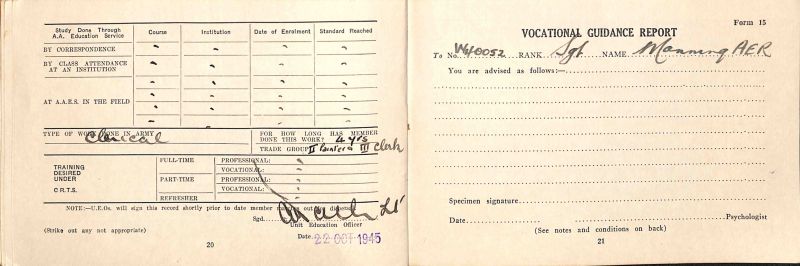 Study Done Through
A.A. Education Service
Course
Institution
Date of Enrolment
Standard Reached
BY CORRESPONDENCE
BY CLASS ATTENDANCE
AT AN INSTITUTION
AT A.A.E.S. IN THE FIELD
TYPE OF WORK DONE IN ARMY
Clerical
FOR HOW LONG HAS MEMBER
DONE THIS WORK? 4 yrs
TRADE GROUP II Painters III Clerk
TRAINING
DESIRED
UNDER
C.R.T.S.
FULL-TIME
PROFESSIONAL:
VOCATIONAL:
PART-TIME
PROFESSIONAL:
VOCATIONAL:
REFRESHER
NOTE:—U.E.Os. will sign this record shortly prior to date member
Sgd. Lt
Unit Education Officer
(Strike out any not appropriate)
Date 22 OCT 1945
20
Form 15
VOCATIONAL GUIDANCE REPORT
To No. RANK Sgt NAME Manning AER
You are advised as follows:—
Specimen signature
Date Psychologist
(See notes and conditions on back)
21